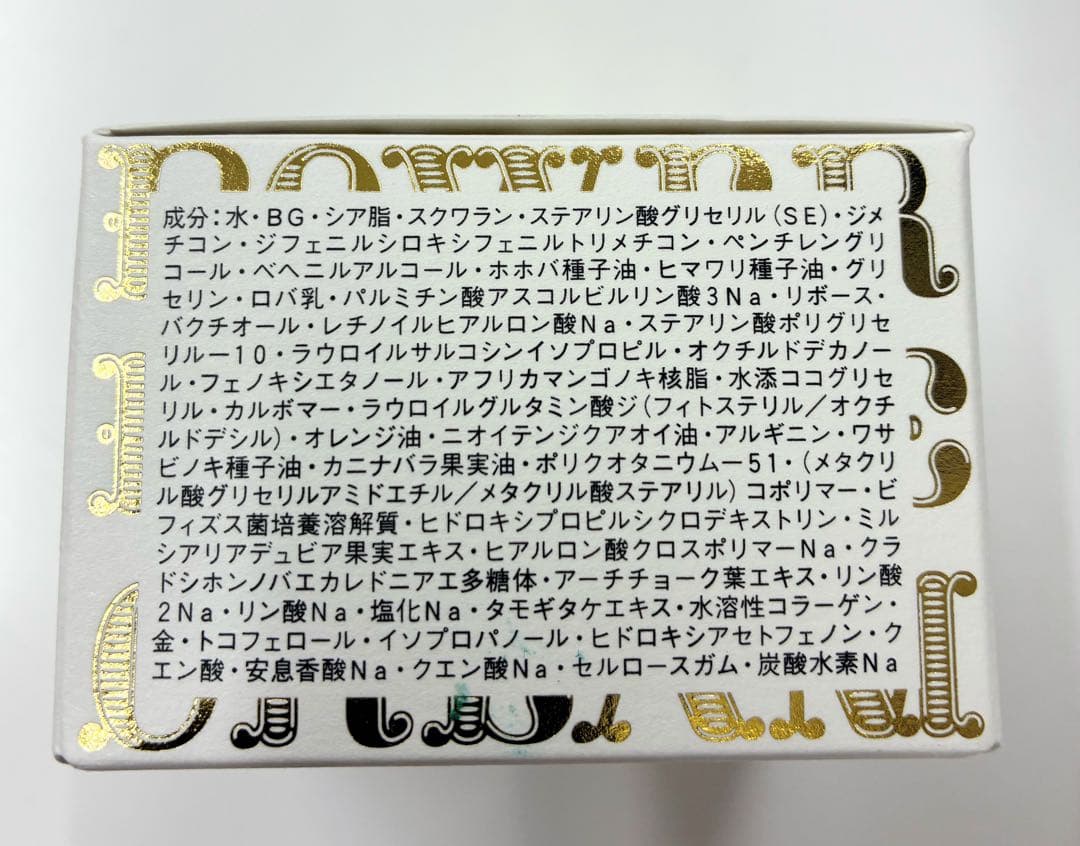 成分：水・ＢＧ・シア脂・スクワラン・ステアリン酸グリセリル（ＳＥ）・ジメ
チコン・ジフェニルシロキシフェニルトリメチコン・ペンチレングリ
コール・ベヘニルアルコール・ホホバ種子油・ヒマワリ種子油・グリ
セリン・ロバ乳・パルミチン酸アスコルビルリン酸３Ｎａ・リボース・
バクチオール・レチノイルヒアルロン酸Ｎａ・ステアリン酸ポリグリセ
リル－１０・ラウロイルサルコシンイソプロピル・オクチルドデカノー
ル・フェノキシエタノール・アフリカマンゴノキ核脂・水添ココグリセ
リル・カルボマー・ラウロイルグルタミン酸ジ（フィトステリル／オクチ
ルドデシル）・オレンジ油・ニオイテンジクアオイ油・アルギニン・ワサ
ビノキ種子油・カニナバラ果実油・ポリクオタニウム－５１・（メタクリ
ル酸グリセリルアミドエチル／メタクリル酸ステアリル）コポリマー・ビ
フィズス菌培養溶解質・ヒドロキシプロピルシクロデキストリン・ミル
シアリアデュビア果実エキス・ヒアルロン酸クロスポリマーＮａ・クラ
ドシホンノバエカレドニアエ多糖体・アーチチョーク葉エキス・リン酸
２Ｎａ・リン酸Ｎａ・塩化Ｎａ・タモギタケエキス・水溶性コラーゲン・
金・トコフェロール・イソプロパノール・ヒドロキシアセトフェノン・ク
エン酸・安息香酸Ｎａ・クエン酸Ｎａ・セルロースガム・炭酸水素Ｎａ